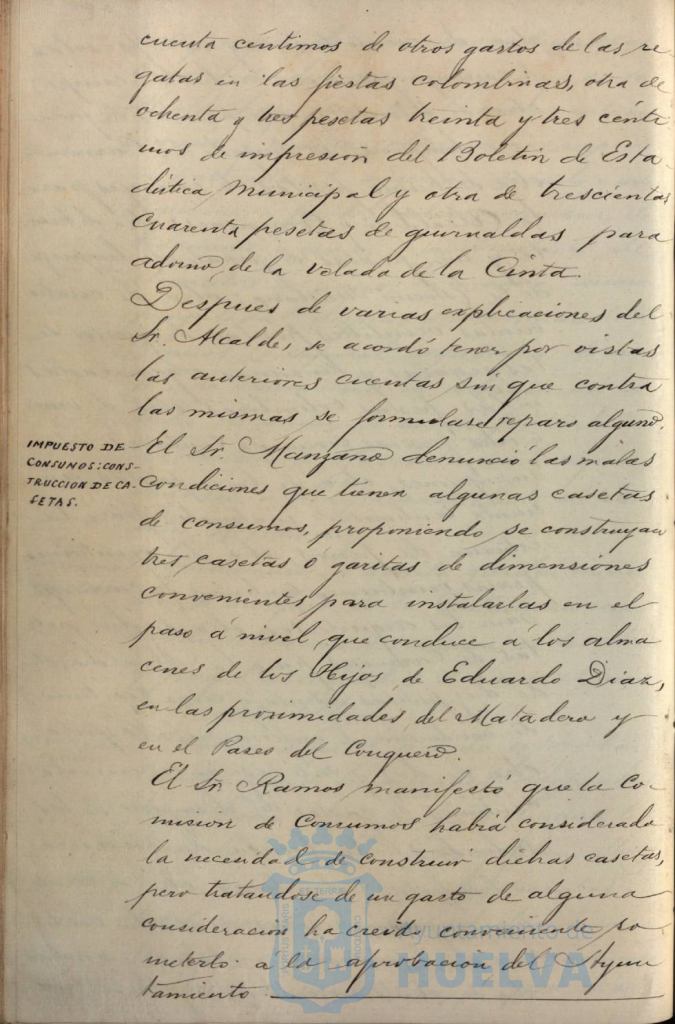 cuenta céntimos de otros gastos de las re
gatas en las fiestas colombinas, otra de
ochenta y tres pesetas treinta y tres cénti
mos de impresión del Boletin de Esta
dística Municipal y otra de trescientas
cuarenta pesetas de guirnaldas para
adorno de la velada de la Cinta.
Despues de varias explicaciones del
Sr. Alcalde, se acordó tener por vistas
las anteriores cuentas sin que contra
las mismas se formulase reparo alguno.
IMPUESTO DE
CONSUMOS: CONS-
TRUCCION DE CA-
SETAS.
El Sr. Manzano denunció las malas
condiciones que tienen algunas casetas
de consumos, proponiendo se construyan
tres casetas ó garitas de dimensiones
convenientes para instalarlas en el
paso á nivel que conduce á los alma
cenes de los Hijos de Eduardo Diaz,
en las proximidades del Matadero y
en el Paseo del Conquero.
El Sr. Ramos manifestó que la Co-
misión de Consumos habia considerado
la necesidad de construir dichas casetas,
pero tratandose de un gasto de alguna
consideración ha creido conveniente so
meterlo á la aprobación del Ayun
tamiento
Ayuntamiento de
HUELVA